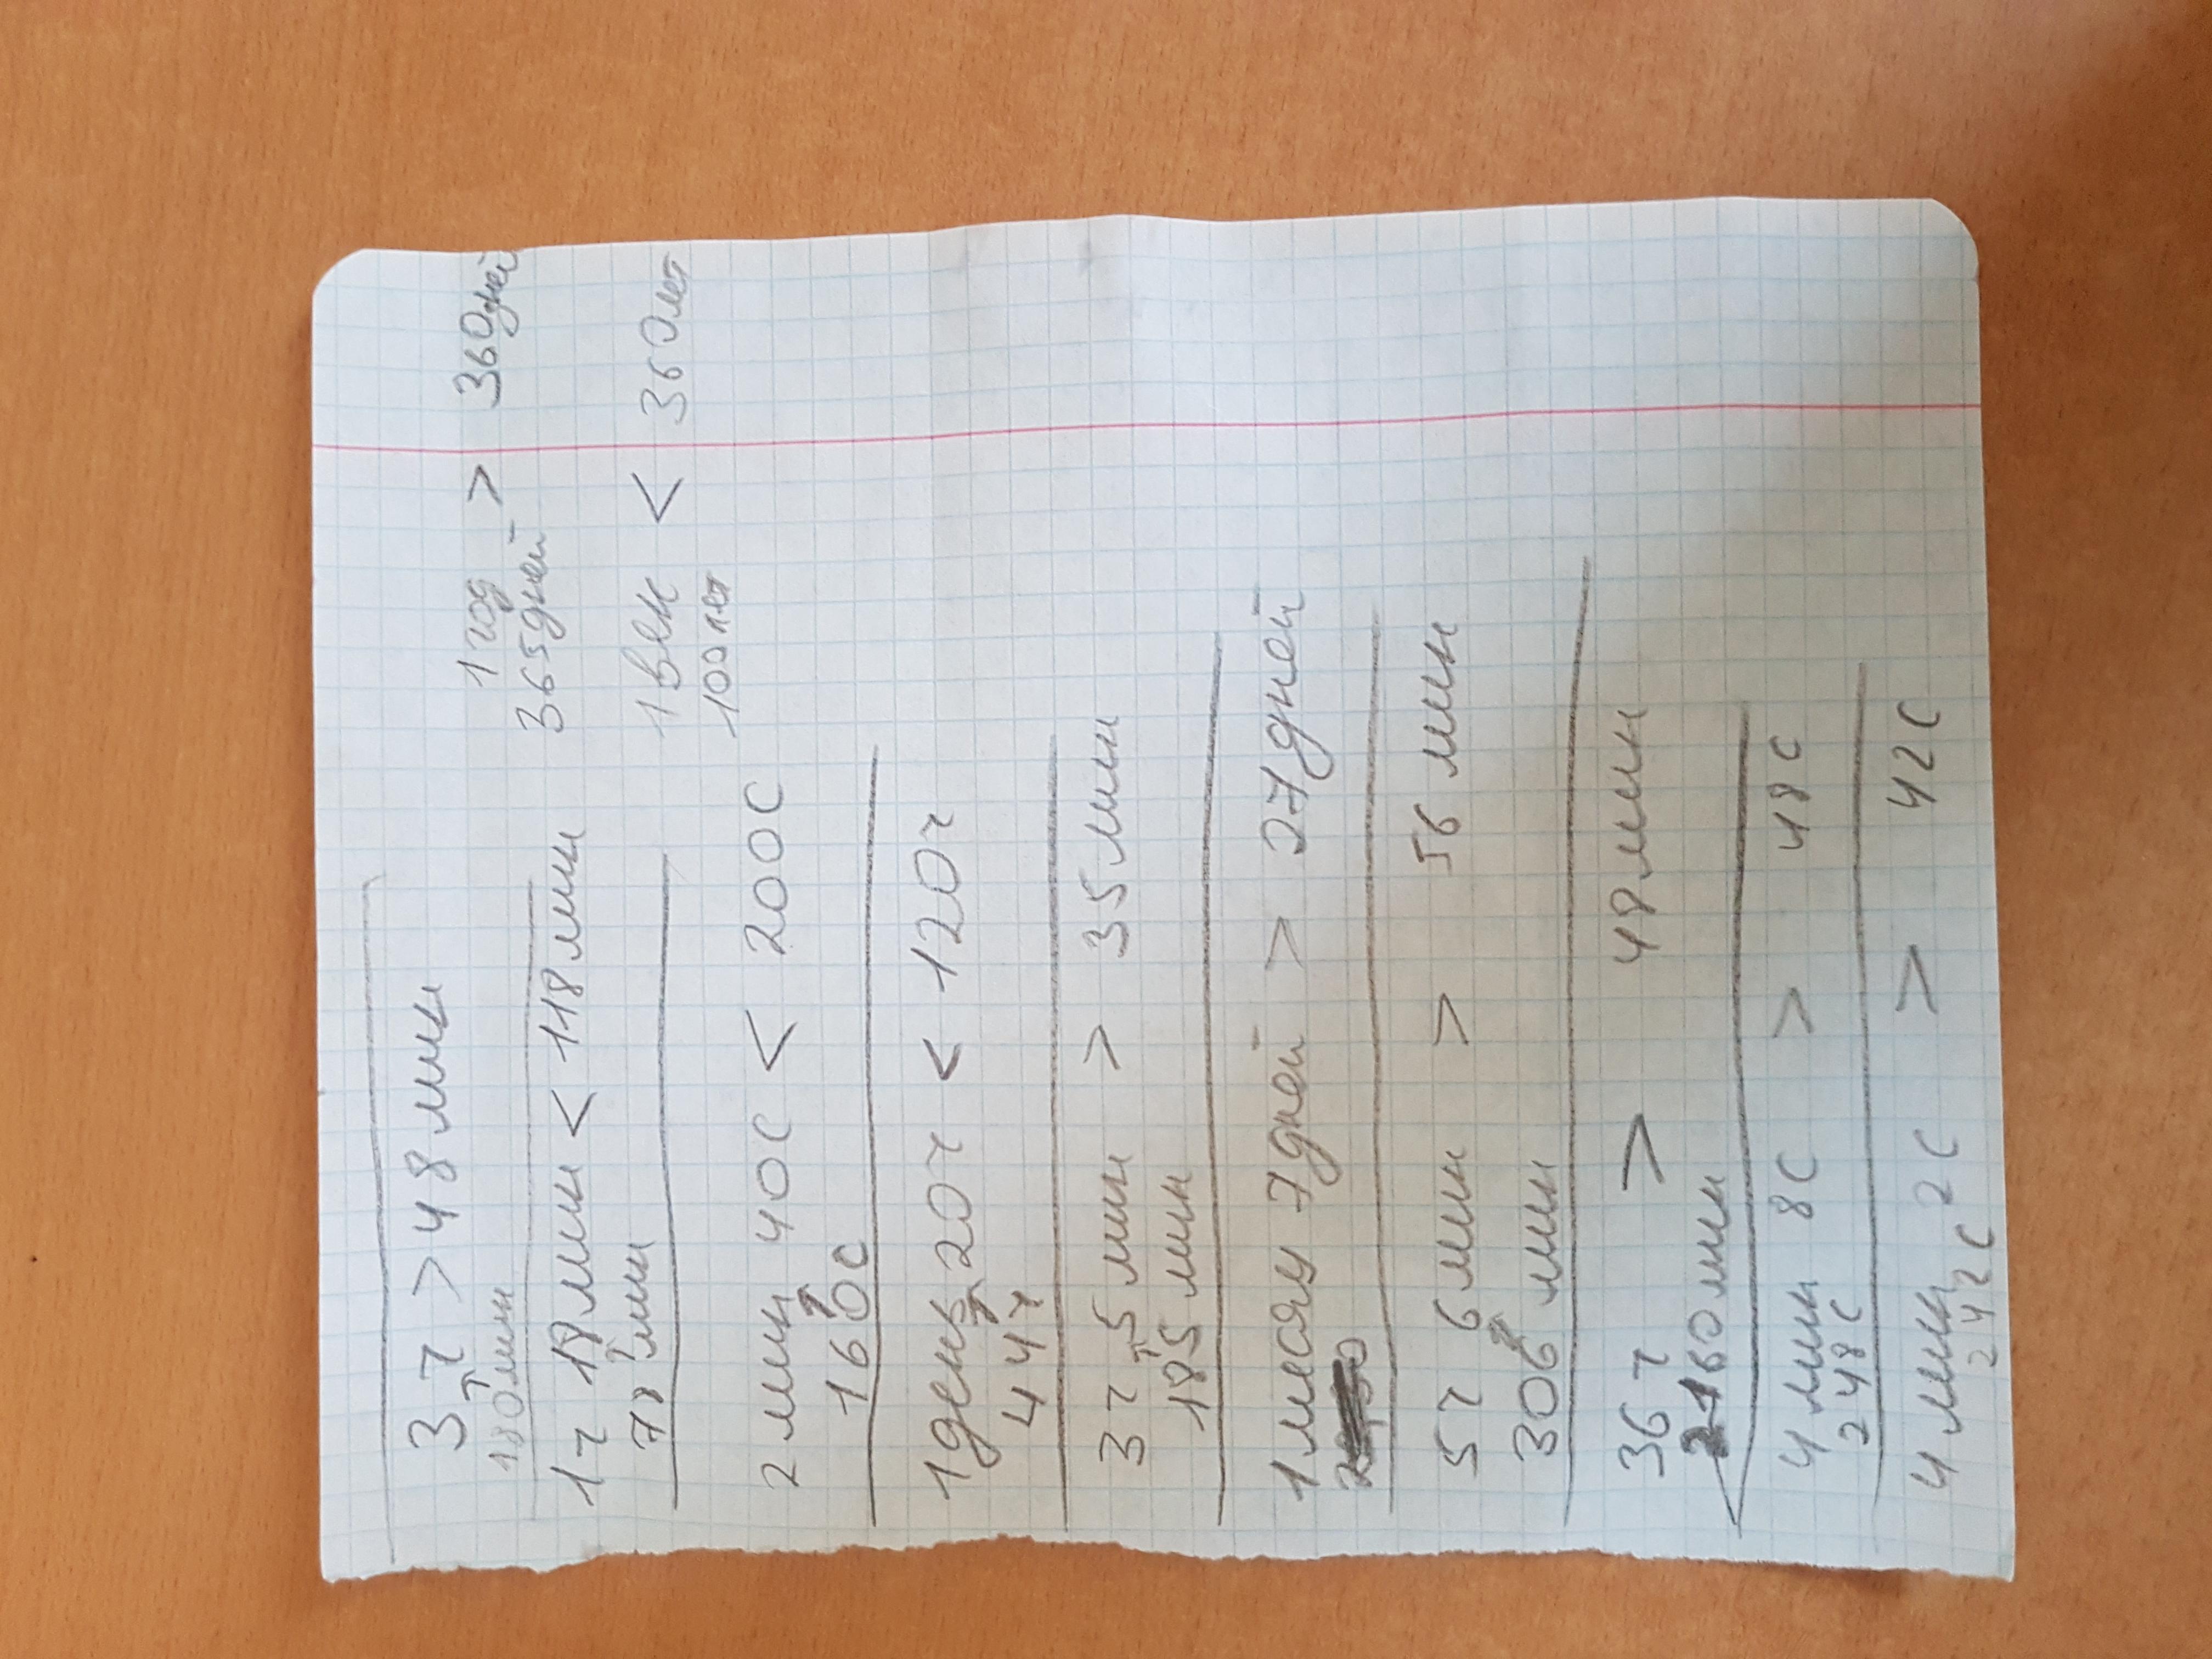 3 ч > 48 мин
180 мин
1 ч 18 мин < 118 мин
78 мин
2 мин 40 с < 200 с
160 с
1 день 20 ч < 120 ч
44 ч
3 ч 5 мин > 35 мин
185 мин
1 месяц 7 дней > 27 дней
5 ч 6 мин > 56 мин
306 мин
36 ч > 48 мин
2160 мин
4 мин 8 с > 48 с
248 с
4 мин 2 с > 42 с
242 с
1 год > 360 дней
365 дней
1 век < 360 лет
100 лет